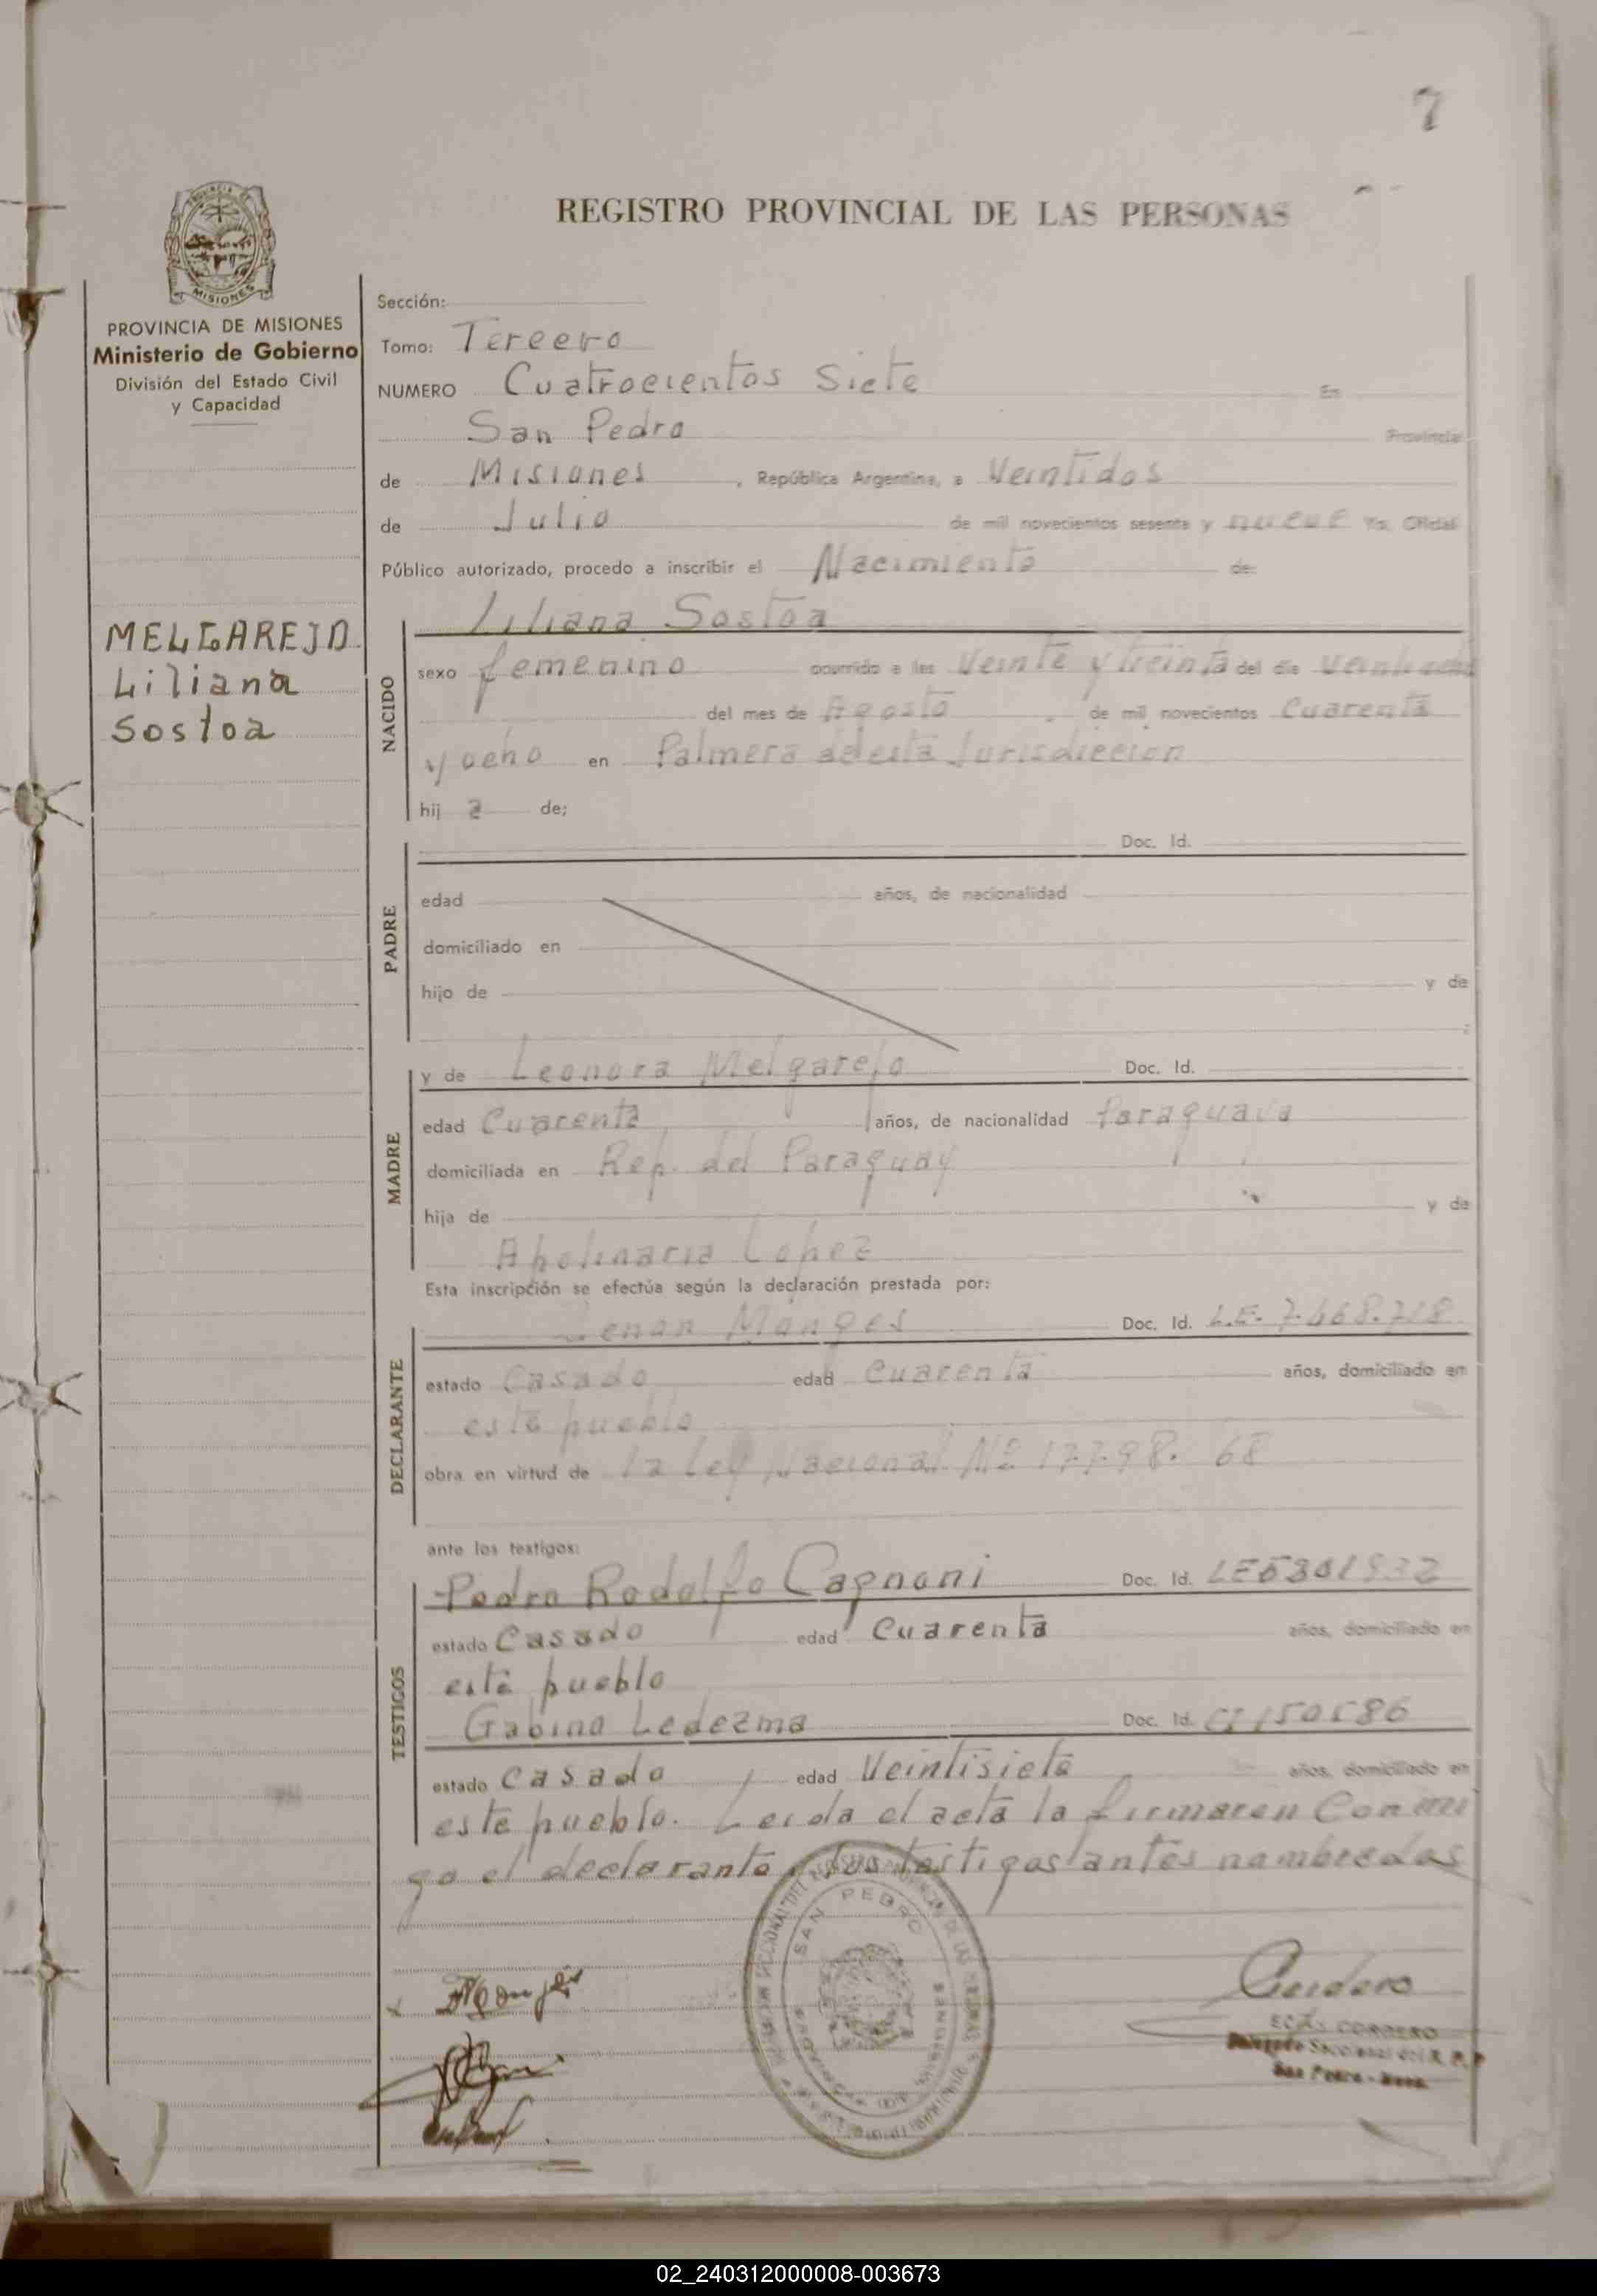 7
REGISTRO PROVINCIAL DE LAS PERSONAS
PROVINCIA DE MISIONES
Ministerio de Gobierno
División del Estado Civil
y Capacidad
MELGAREJO
Liliana
Sostoa
Sección:
Tomo: Tercero
NUMERO Cuatrocientos Siete En
San Pedro Provincia
de Misiones, República Argentina, a Veintidos
de Julio de mil novecientos sesenta y nueve Yo, Oficial
Público autorizado, procedo a inscribir el Nacimiento de:
NACIDO
Liliana Sostoa
sexo femenino ocurrido a las Veinte y treinta del día Veintiocho
del mes de Agosto de mil novecientos Cuarenta
y ocho en Palmera de esta Jurisdiccion
hij a de;
PADRE
Doc. Id.
edad años, de nacionalidad
domiciliado en
hijo de y de
MADRE
y de Leonora Melgarejo Doc. Id.
edad Cuarenta años, de nacionalidad Paraguaya
domiciliada en Rep. del Paraguay
hija de y de
Apolinaria Lopez
Esta inscripción se efectúa según la declaración prestada por:
DECLARANTE
Monges Doc. Id. L.E. 7.468.718
estado Casado edad Cuarenta años, domiciliado en
este pueblo
obra en virtud de la Ley Nacional Nº 17798. 68
ante los testigos:
TESTIGOS
Pedro Rodolfo Cagnoni Doc. Id. LE
estado Casado edad Cuarenta años, domiciliado en
este pueblo
Gabino Ledezma Doc. Id. CI 150586
estado Casado edad Veintisiete años, domiciliado en
este pueblo. Leida el acta la firmaran Conmi
go el declarante y los testigos antes nombrados
SAN PEDRO
Cordero
ELIAS CORDERO
Delegado Seccional del R. P. P
San Pedro - Mnes.
02_240312000008-003673